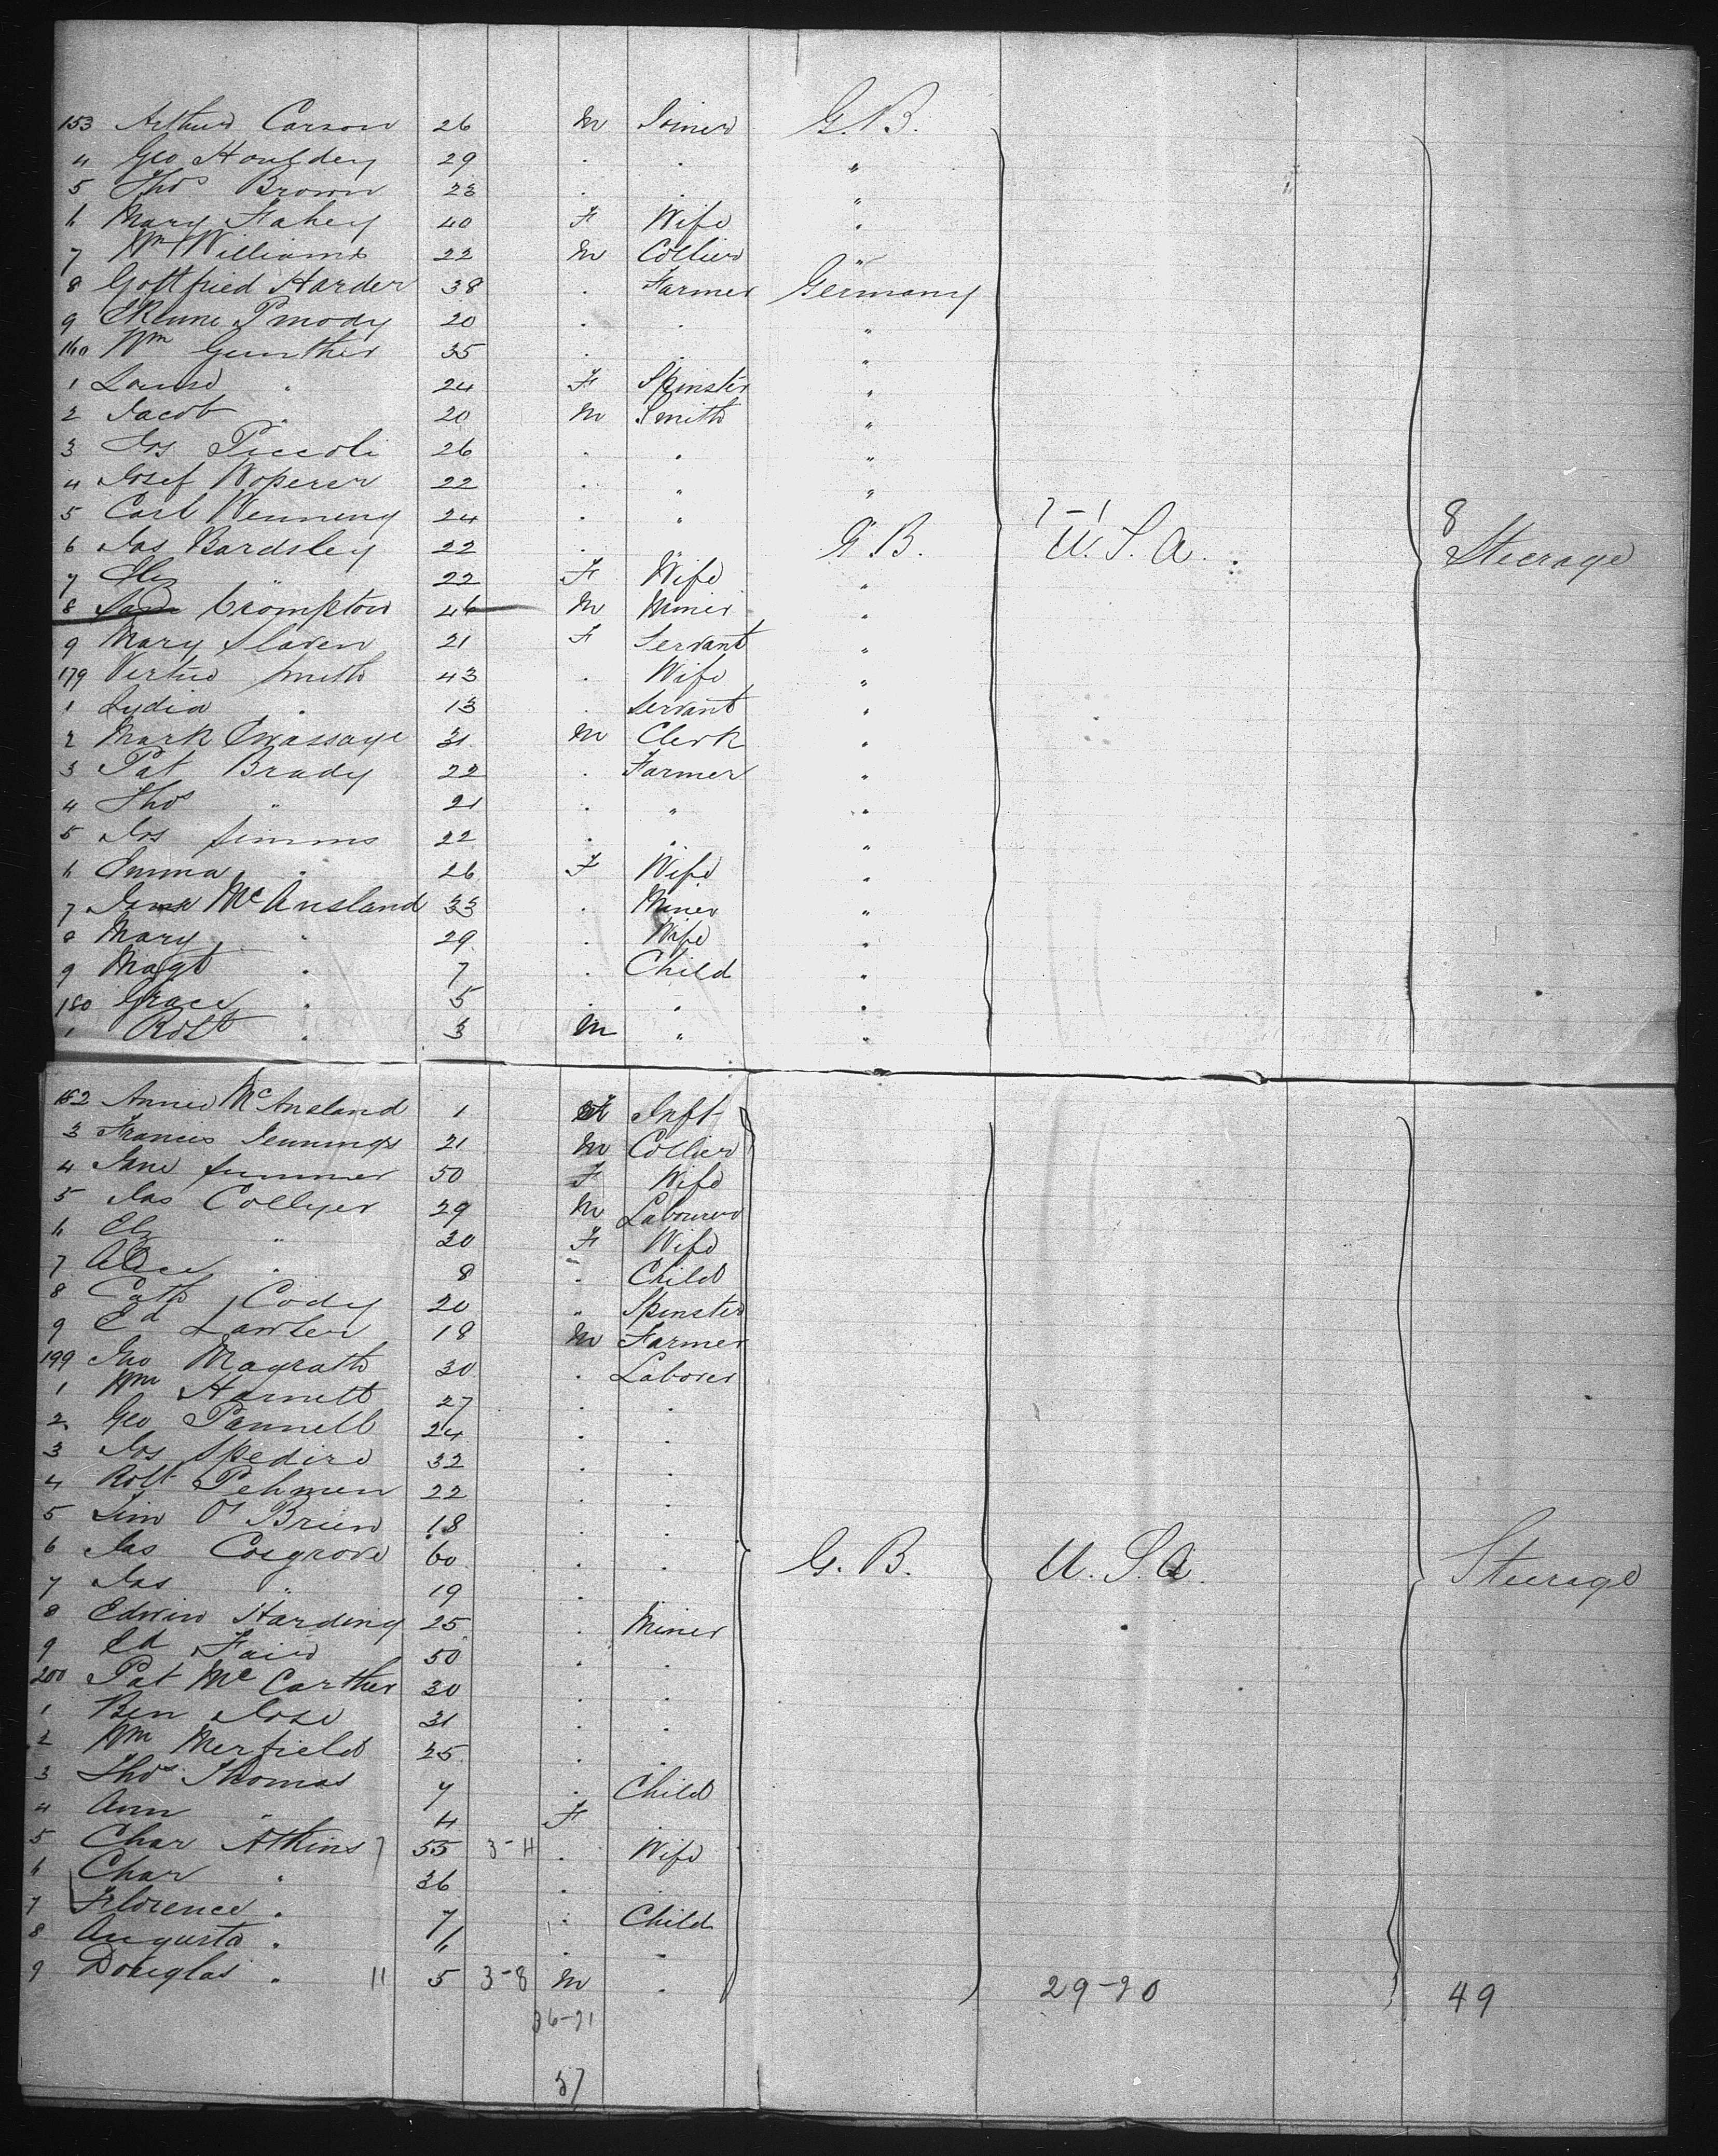 153 Arthur Carson 26 M Joiner G.B.
4 Geo Houlden 29 . . "
5 Thos Brown 23 . . "
6 Mary Fahey 40 F Wife "
7 Wm Williams 22 M Collier "
8 Gottfried Harder 38 . Farmer Germany
9 Pmody 20 . . "
160 Wm Gunther 35 . . "
1 Louise " 24 F Spinster "
2 Jacob " 20 M Smith "
3 Jos Piccoli 26 . . "
4 Josef Woperer 22 . " "
5 Carl Wenning 24 . " 7-1 8
6 Jas Bardsley 22 . . G.B. U.S.A. Steerage
7 Elz " 22 F Wife "
8 Crompton 46 M Miner "
9 Mary Slaven 21 F Servant "
179 Virtue Smith 43 . Wife "
1 Lydia . 13 . Servant "
2 Mark 31 M Clerk "
3 Pat Brady 22 . Farmer "
4 Thos " 21 . " "
5 Jos Simms 22 . " "
6 Emma . 26 F Wife "
7 James McAusland 33 . Miner "
8 Mary " 29 . Wife "
9 Magt . 7 . Child "
180 Grace . 5 . . "
1 Robt . 3 M " "
182 Annie McAusland 1 F Inft
3 Francis Jennings 21 M Collier
4 Jane Summer 50 F Wife
5 Jas Collyer 29 M Labourer
6 Elz " 30 F Wife
7 Alice . 8 . Child
8 Cath Cody 20 " Spinster
9 Ed Lawler 18 M Farmer
199 Jno Magrath 30 . Laborer
1 Wm Harnett 27 . .
2 Geo Pannell 24 . .
3 Jos Spedire 32 . .
4 Robt Pehmen 22 . .
5 Tim O'Brien 18 . .
6 Jas Cosgrove 60 . . G.B. U.S.A. Steerage
7 Jas " 19
8 Edwin Harding 25 . Miner
9 Ed Fair 50 . .
200 Pat McCarther 30 . .
1 Ben Jose 31 . .
2 Wm Merfield 25 . .
3 Thos Thomas 7 . Child
4 Ann . 4 F
5 Char Atkins 55 3-4 . Wife
6 Char . 36 .
7 Florence . 7 . Child
8 Augusta " . .
9 Douglas . 11 5 3-8 M . 29-20 49
36-21
57